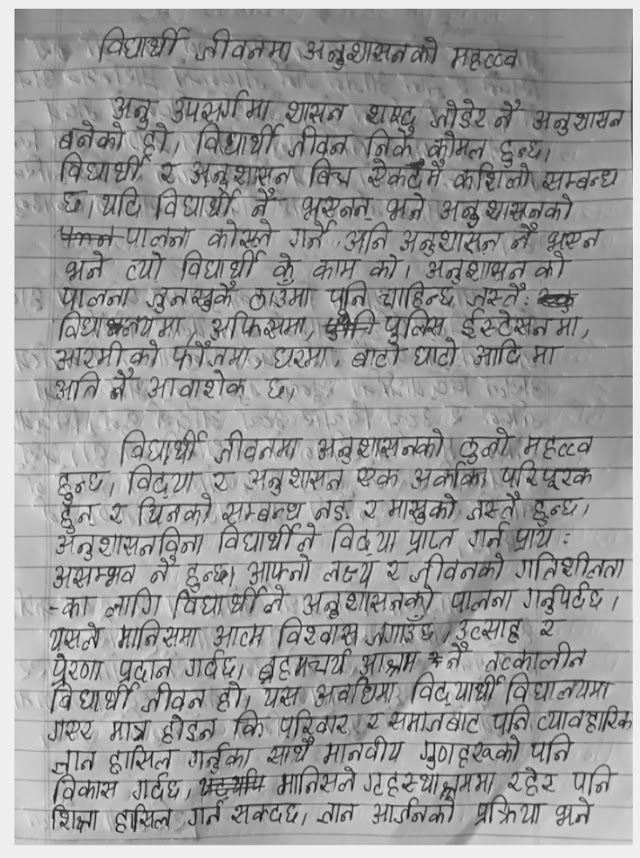 विद्यार्थी जीवनमा अनुशासनको महत्त्व
अनु उपसर्गमा शासन शब्द जोडेर नै अनुशासन
बनेको हो। विद्यार्थी जीवन निकै कोमल हुन्छ।
विद्यार्थी र अनुशासन विच ऐकदमै कशिलो सम्बन्ध
छ। यदि विद्यार्थी नै भएनन् भने अनुशासनको
पालना कोस्ले गर्ने अनि अनुशासन नै भएन
भने त्यो विद्यार्थी के काम को। अनुशासन को
पालना जुनसुकै ठाउमा पनि चाहिन्छ जस्तै:
विद्यालयमा, अफिसमा, पुलिस ईस्टेसन मा,
आरमी को फौजमा, घरमा, बाटो घाटो आदि मा
अति नै आवाशेक छ।
विद्यार्थी जीवनमा अनुशासनको ठुलो महत्त्व
हुन्छ। विद्या र अनुशासन एक अर्काका परिपूरक
हुन् र यिनको सम्बन्ध नङ र मासुको जस्तै हुन्छ।
अनुशासनविना विद्यार्थीले विद्या प्राप्त गर्न प्राय:
असम्भव नै हुन्छ। आफ्नो लक्ष्य र जीवनको गतिशीलता
-का लागि विद्यार्थीले अनुशासनको पालना गर्नुपर्दछ।
यसले मानिसमा आत्म विश्वास जगाउँछ, उत्साह र
प्रेरणा प्रदान गर्दछ। ब्रह्मचर्य आश्रम नै तत्कालीन
विद्यार्थी जीवन हो। यस अवधिमा विद्यार्थी विद्यालयमा
गएर मात्र होइन कि परिवार र समाजबाट पनि व्यावहारिक
ज्ञान हासिल गर्नुका साथै मानवीय गुणहरूको पनि
विकास गर्दछ। मानिसले गृहस्थाश्रममा रहेर पनि
शिक्षा हासिल गर्न सक्दछ। ज्ञान आर्जनको प्रक्रिया भने